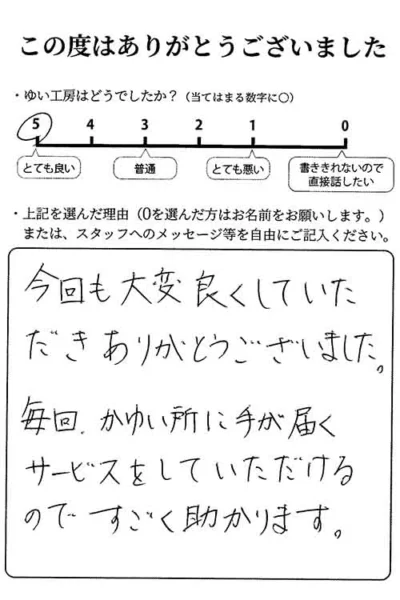 この度はありがとうございました
・ゆい工房はどうでしたか？（当てはまる数字に○）
5 4 3 2 1 0
とても良い 普通 とても悪い 書ききれないので
直接話したい
・上記を選んだ理由（0を選んだ方はお名前をお願いします。）
または、スタッフへのメッセージ等を自由にご記入ください。
今回も大変良くしていた
だきありがとうございました。
毎回、かゆい所に手が届く
サービスをしていただける
のですごく助かります。